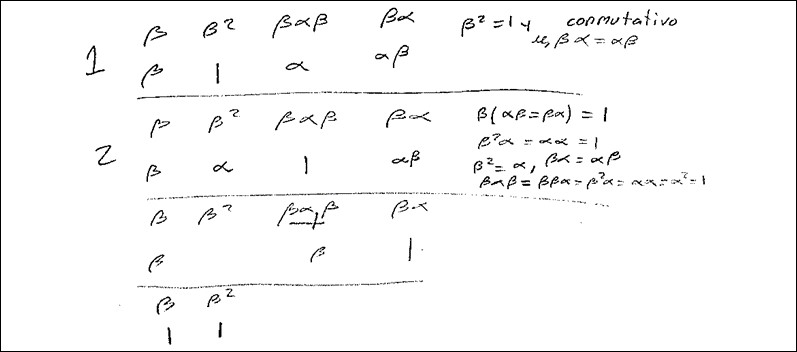 β β² βαβ βα β²=1 y conmutativo
1 β 1 α αβ βα=αβ
β β² βαβ βα β(αβ=βα)=1
β²α=αα=1
2 β α 1 αβ β²=α, βα=αβ
βαβ=ββα=β²α=αα=α²=1
β β² βαβ βα
β β 1
β β²
1 1